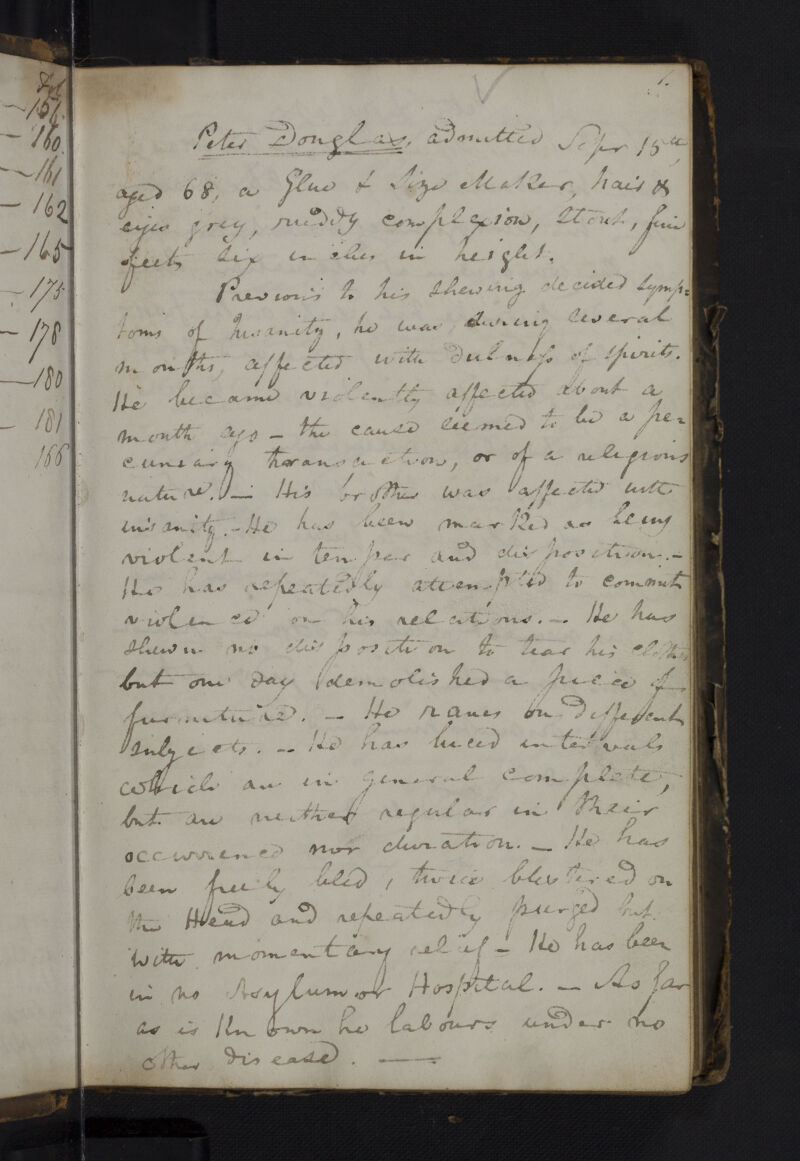 156
160
161
162
165
175
178
180
181
166
1.
Peter Douglas, admitted Sepr 15th,
aged 68, a Glue & Size Maker, hair &
eyes grey, ruddy complexion, Stout, five
feets six inches in height.
Previous to his shewing decided symp=
toms of Insanity, he was, during several
months, affected with dulness of spirits.
He became violently affected about a
month ago – the cause seemed to be a pe-
cuniary transaction, or of a religious
nature. – His brother was affected with
insanity. – He has been marked as being
violent in temper and disposition. –
He has repeatedly attempted to commit
violence on his relations. – He has
shewn no disposition to tear his clothes
but one day demolished a piece of
furniture. – He raves on different
subjects. – He has lucid intervals
which are in general complete,
but are neither regular in their
occurrence nor duration. – He has
been freely bled, twice blistered on
the Head and repeatedly purged but
with momentary relief – He has been
in no Asylum or Hospital. – As far
as is known he labours under no
other disease. —